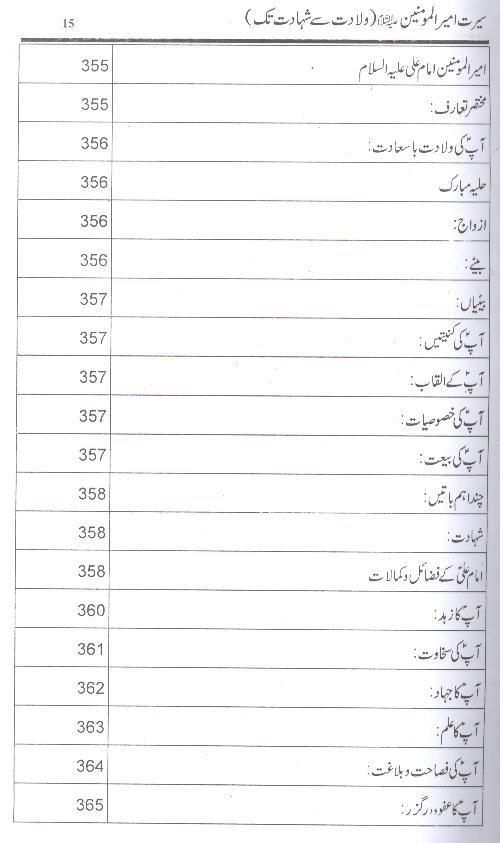 سیرت امیر المومنین علیہ السلام (ولادت سے شہادت تک) 15
امیر المومنین امام علی علیہ السلام 355
مختصر تعارف: 355
آپؑ کی ولادت باسعادت: 356
حلیہ مبارک 356
ازواج: 356
بیٹے: 356
بیٹیاں: 357
آپؑ کی کنیتیں: 357
آپؑ کے القاب: 357
آپؑ کی خصوصیات: 357
آپؑ کی بیعت: 357
چند اہم باتیں: 358
شہادت: 358
امام علیؑ کے فضائل و کمالات 358
آپؑ کا زہد: 360
آپؑ کی سخاوت: 361
آپؑ کا جہاد: 362
آپؑ کا علم: 363
آپؑ کی فصاحت و بلاغت: 364
آپؑ کا عفو و درگزر: 365